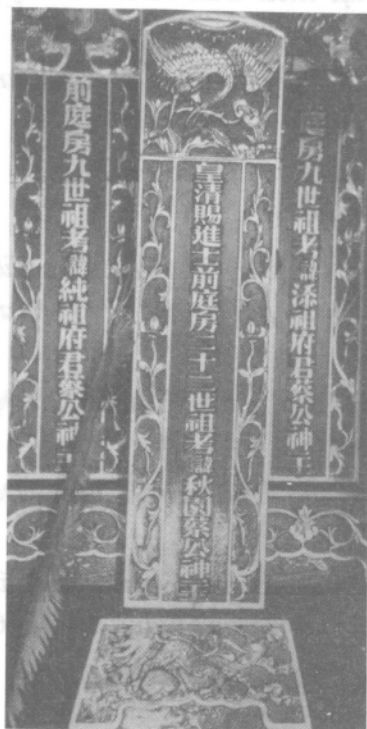 庭房九世祖考諱添祖府君蔡公神主
皇清賜進士前庭房二十二世祖考諱秋園蔡公神主
前庭房九世祖考諱純祖府君蔡公神主